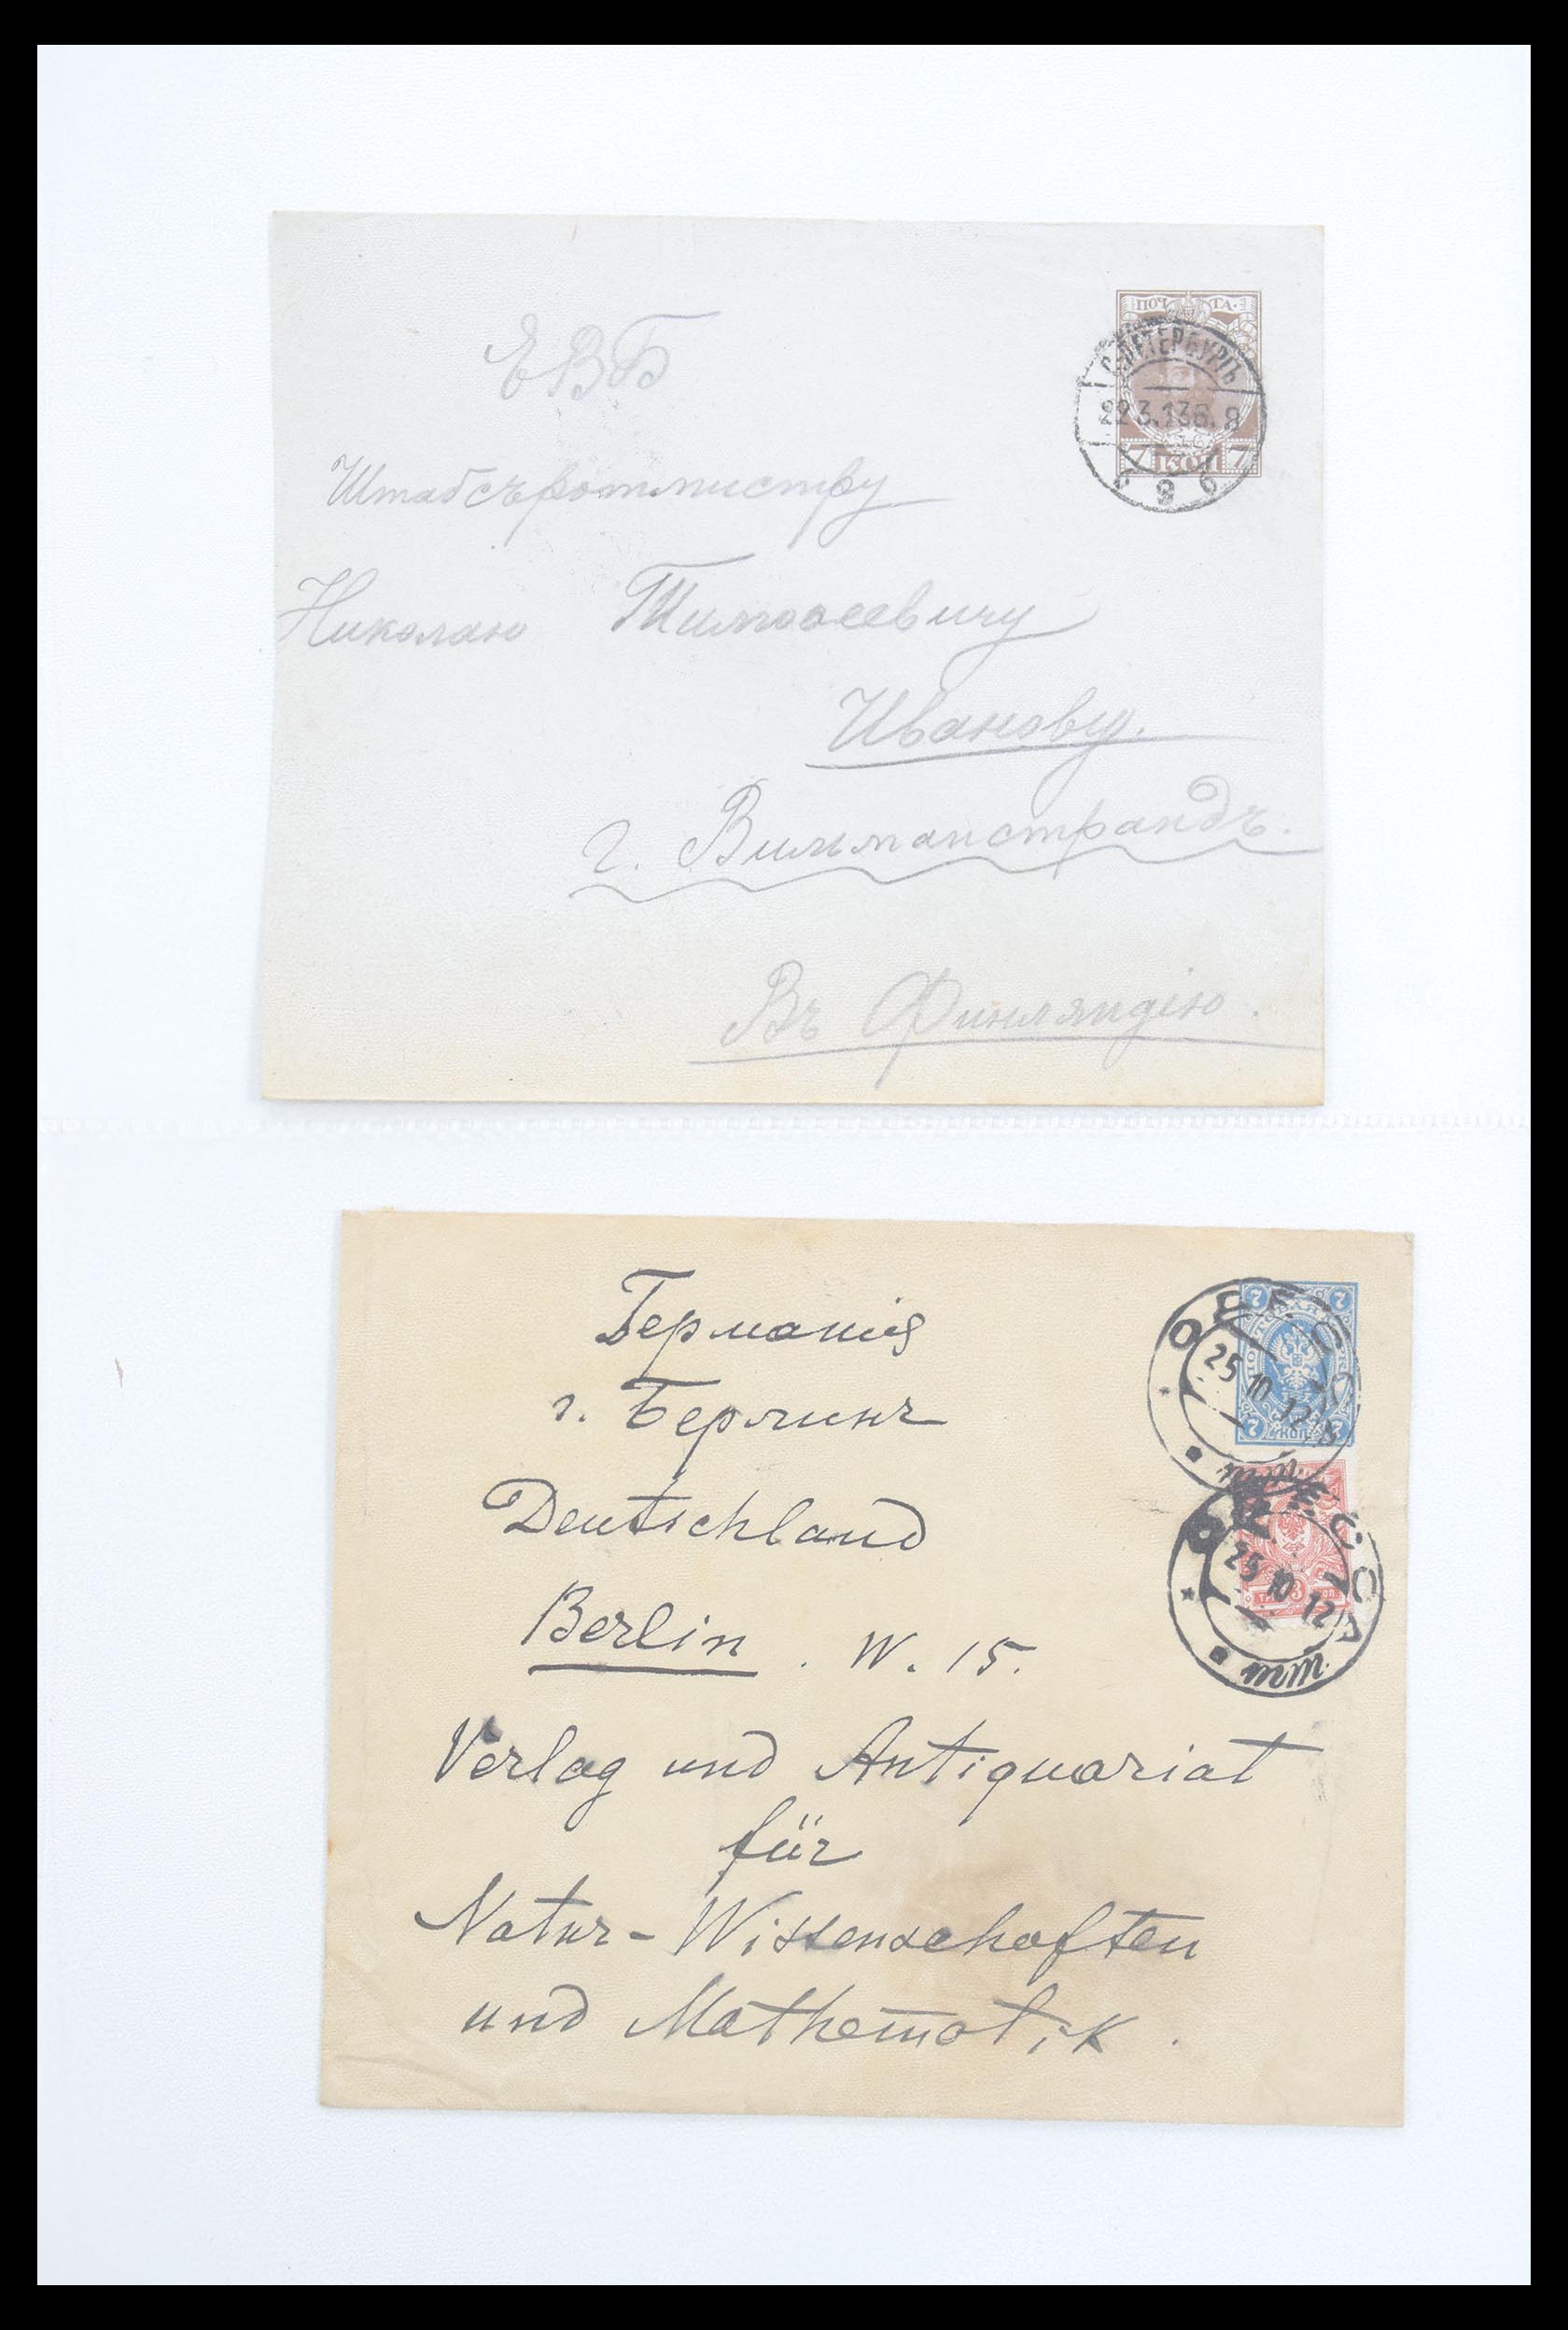 ПОЧТА.
С.ПЕТЕРБУРГЪ
22 3.13 8
7 КОП 7
ЕВБ
Штабсъротмистру
Николаю Тимоѳеевичу
Иванову.
г. Вильманстрандъ.
Въ Финляндію.
7 7
7 КОП. 7
ОДЕССА
25 10 12
ОДЕССА
25 10 12
Германія
г. Берлинъ
Deutschland
Berlin. W. 15.
Verlag und Antiquariat
für
Natur-Wissenschaften
und Mathematik.